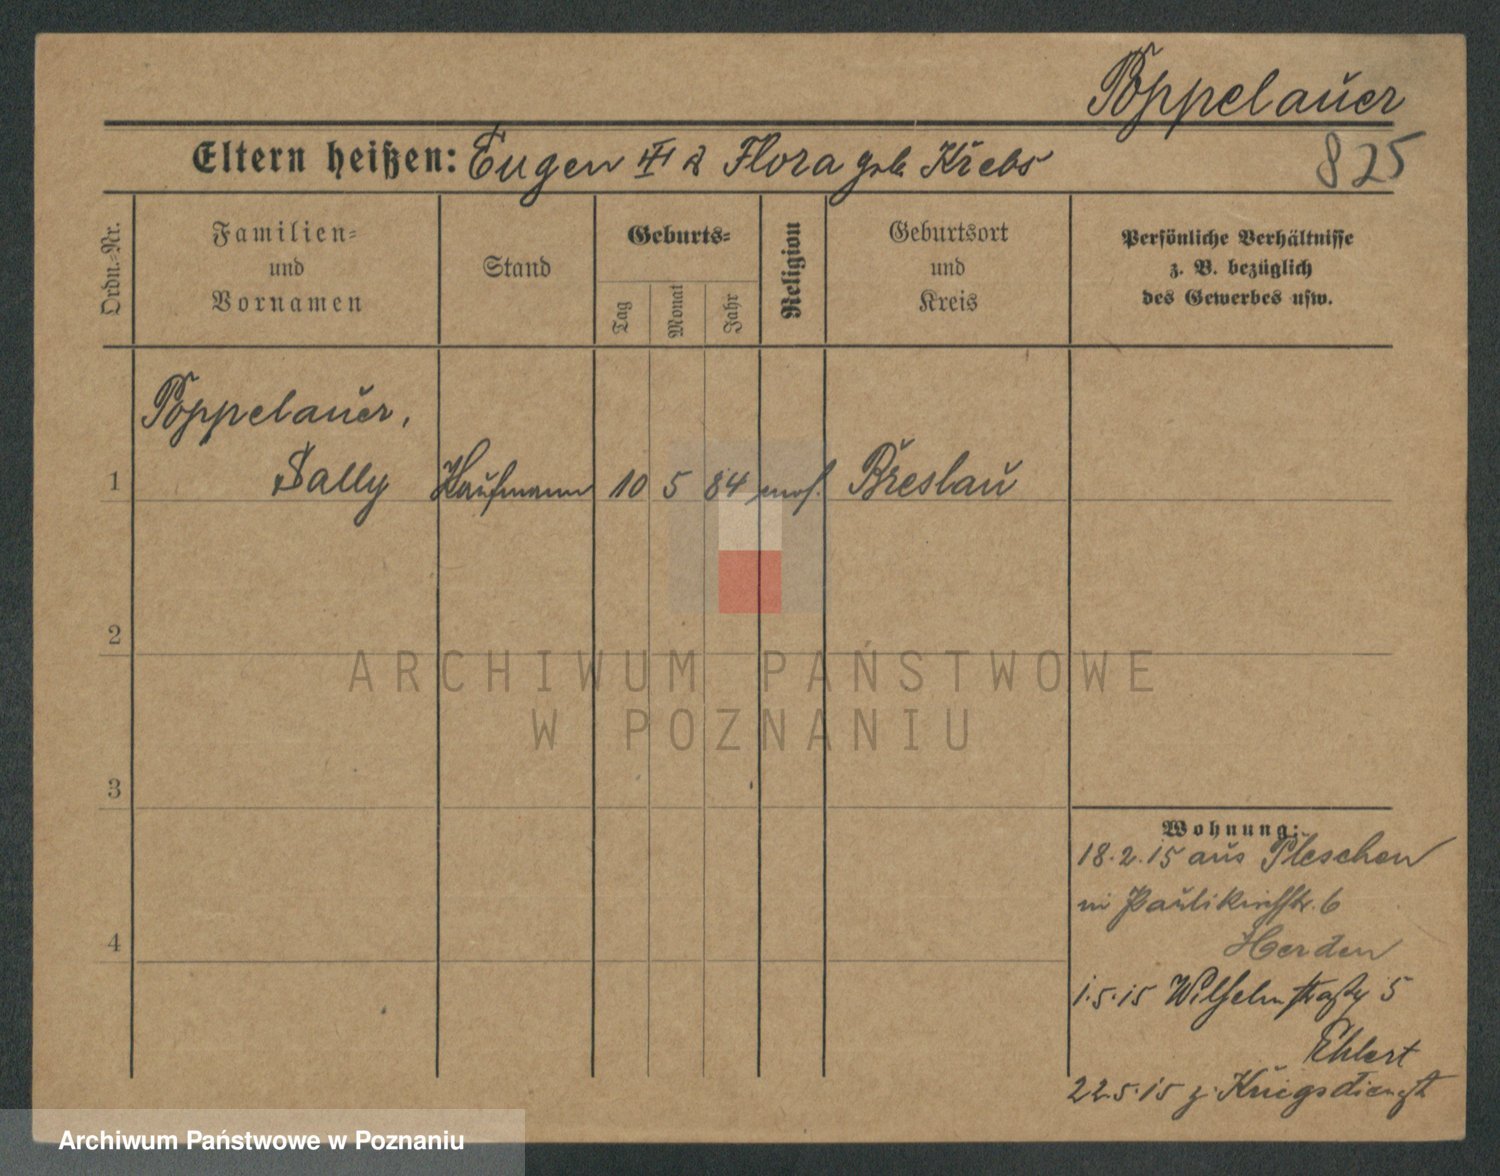 Poppelauer
825
Eltern heißen: Eugen & Flora geb Krebs
Ordn.-Nr.
Familien-
und
Vornamen
Stand
Geburts-
Tag
Monat
Jahr
Religion
Geburtsort
und
Kreis
Persönliche Verhältnisse
z. B. bezüglich
des Gewerbes usw.
Poppelauer,
1 Sally Kaufmann 10 5 84 mos. Breslau
2
ARCHIWUM PAŃSTWOWE
W POZNANIU
3
4
Wohnung:
18.2.15 aus Pleschen
Paulikirchstr. 6
Herden
1.5.15 Wilhelmstraße 5
Ehlert
22.5.15 z. Kriegsdienst
Archiwum Państwowe w Poznaniu